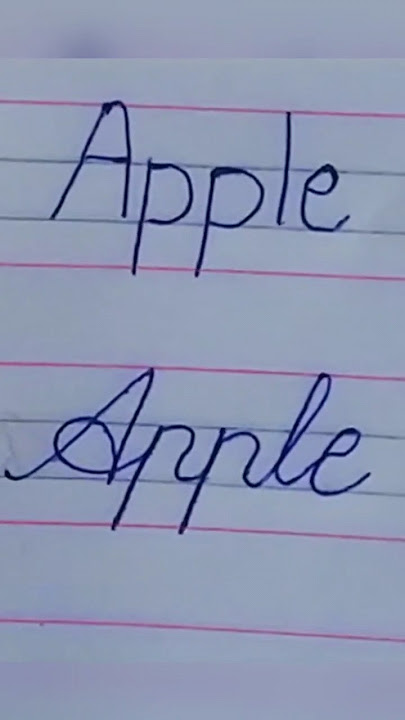 Apple
Apple